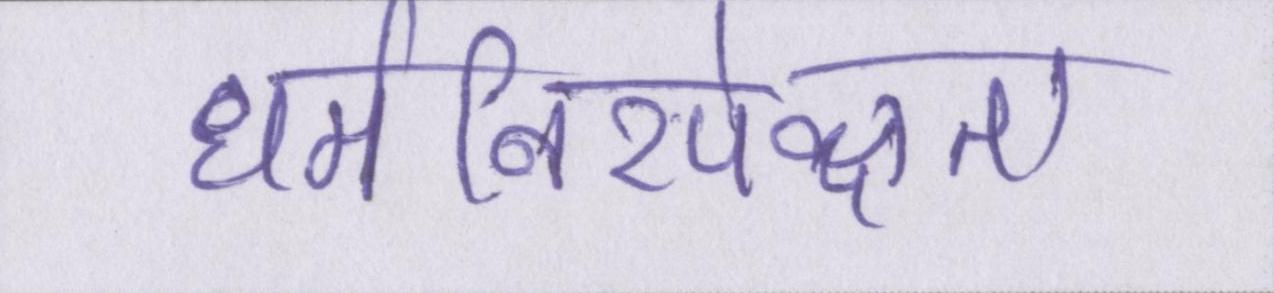 धर्मनिरपेक्षता